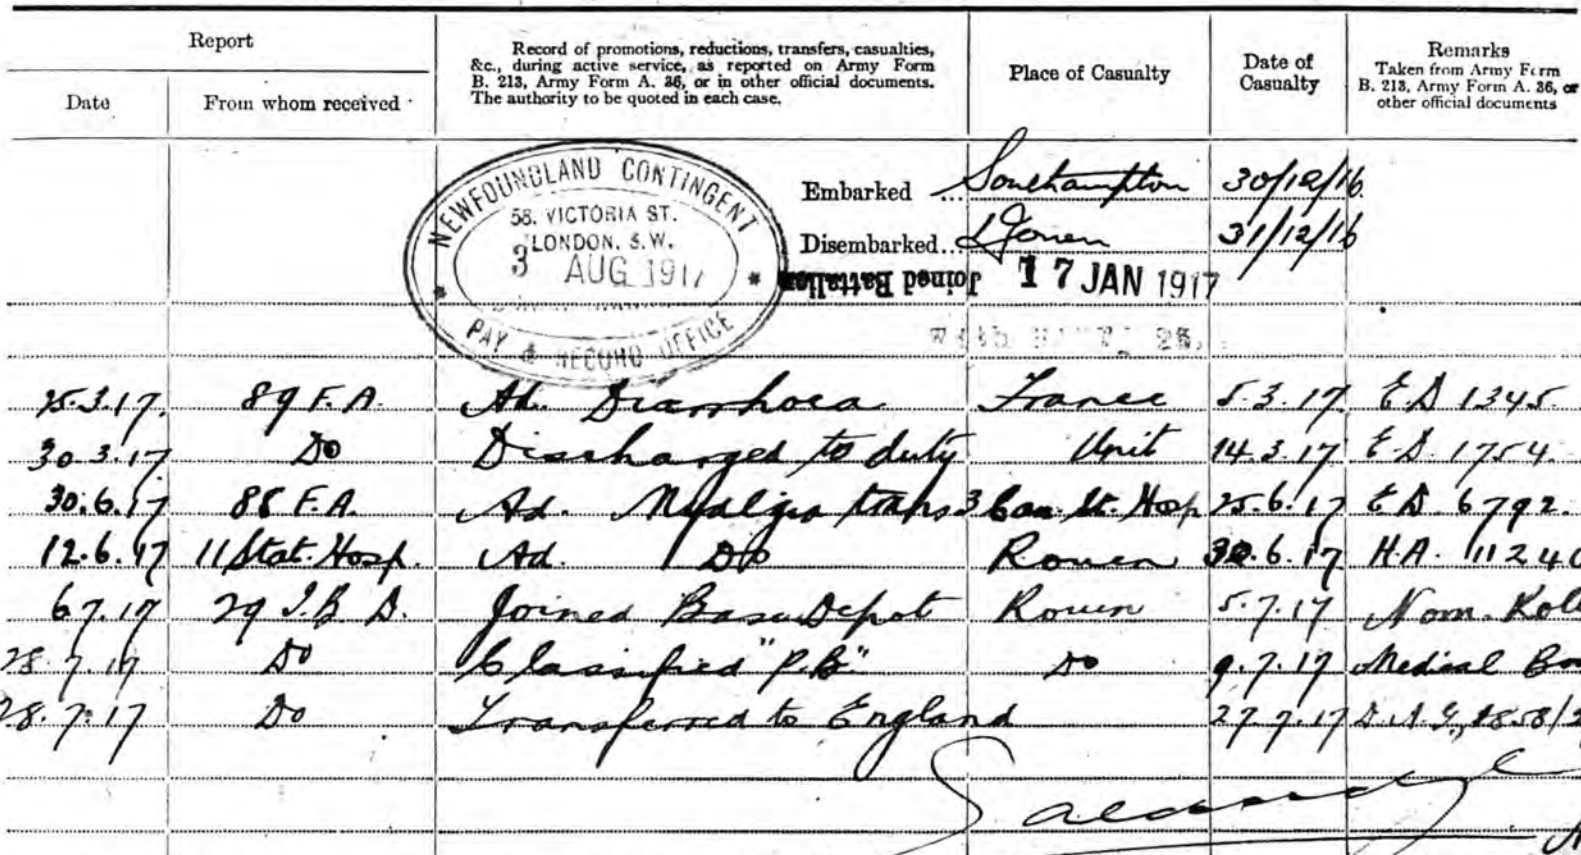 Report
Date
From whom received
Record of promotions, reductions, transfers, casualties,
&c., during active service, as reported on Army Form
B. 213, Army Form A. 36, or in other official documents.
The authority to be quoted in each case.
Place of Casualty
Date of
Casualty
Remarks
Taken from Army Form
B. 213, Army Form A. 36, or
other official documents
NEWFOUNDLAND CONTINGENT
58. VICTORIA ST.
LONDON. S.W.
3 AUG 1917
PAY & RECORD OFFICE
Embarked ... Southampton 30/12/16
Disembarked... Rouen 31/12/16
Joined Battalion 17 JAN 1917
25.3.17. 89 F.A. Ad. Diarrhoea France 5.3.17 E.D 1345.
30.3.17 Do Discharged to duty Unit 14.3.17 E.D. 1754.
30.6.17 88 F.A. Ad. Myalgia trans 3 Can. St. Hosp 25.6.17 E.D. 6792.
12.6.17 11 Stat. Hosp. Ad. Do Rouen 30.6.17 H.A. 11240
6.7.17 29 I.B.D. Joined Base Depot Rouen 5.7.17 Nom. Roll
28.7.17 Do Classified "P.B" Do 9.7.17 Medical Boa
28.7.17 Do Transferred to England 27.7.17 D.A.G.